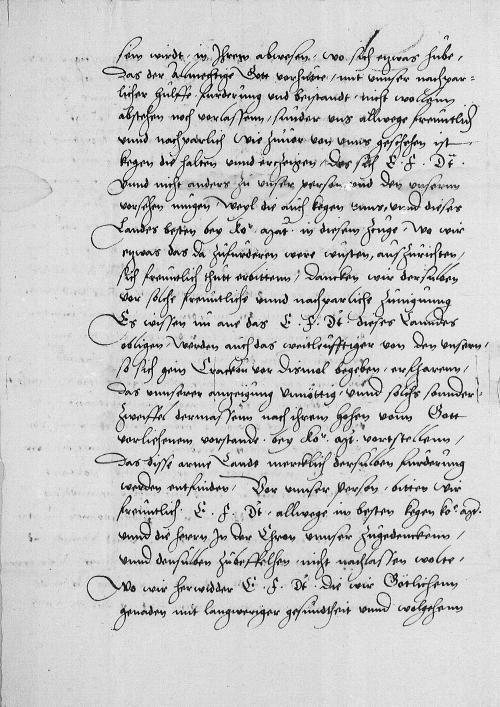 sein wirdt, in Ihrem abwesen, wo sich etwas hübe,
Das der Almechtige Gott vorhütte, mit unser nachpar=
licher hülffe furderüng und beistandt, nicht wollenn
abstehen noch vorlassenn, sünder uns allwege freüntlich
unnd nachparlich wie züvor von unns geschehen ist
kegen die halten unnd ertzeigen, des sich E. F. Dt.
Unnd nicht anders zü unser person und den unsernn
vorsehen mügen, Weyl die auch kegen uns, unnd dieses
Landes besten bey Kor. Mayat. in diesem zeüge, Wo wir
etwas das da zufürderen were wüsten, auszürichten,
sich freüntlich thütt erbittenn, Dancken wir derselben
vor solche freüntliche unnd nachparliche züneigüng
Es wissen nü ane das E. F. Dt. dieses Lanndes
obligen, Werden auch das weitleüfftiger von den unsern,
so sich gein Crackow vor dismol begeben, erfharenn,
Das unnserer antzeigüng unnöttig, Unnd solchs sonder
zweyffel dermassenn nach ihrem hohen vonn Gott
vorlichenem vorstandt, bey Kor. Mt. vortstellenn,
Das disse arme Lande mercklich derselben fürderüng
werden entfinden, Vor unnser Person, bitten wir
freüntlich, E. F. Dt. allwege im besten kegen Kor. Mt.
unnd die herrn In der Chron unnser zügedenckenn,
unnd denselben zübeffelhen, nicht nachlassen wolte,
Wo wir herwidder E. F. Dt. die wir Gotlichenn
genaden mit langweriger gesündtheit unnd wolgehenn